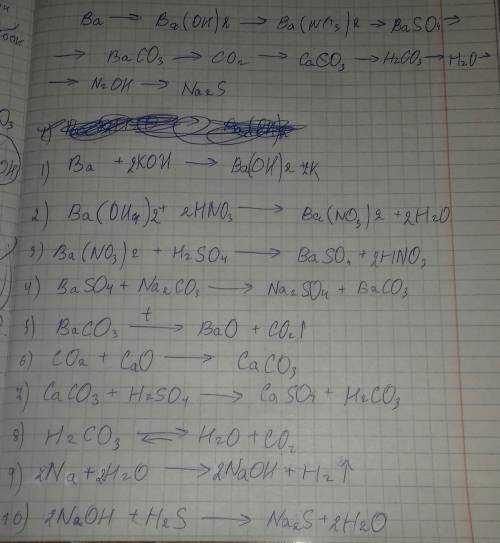 Ba → Ba(OH)2 → Ba(NO3)2 → BaSO4 →
→ BaCO3 → CO2 → CaCO3 → H2CO3 → H2O →
→ NaOH → Na2S
1) Ba + 2KOH → Ba(OH)2 + 2K
2) Ba(OH)2 + 2HNO3 → Ba(NO3)2 + 2H2O
3) Ba(NO3)2 + H2SO4 → BaSO4 + 2HNO3
4) BaSO4 + Na2CO3 → Na2SO4 + BaCO3
5) BaCO3 t→ BaO + CO2↑
6) CO2 + CaO → CaCO3
7) CaCO3 + H2SO4 → CaSO4 + H2CO3
8) H2CO3 ⇌ H2O + CO2
9) 2Na + 2H2O → 2NaOH + H2↑
10) 2NaOH + H2S → Na2S + 2H2O